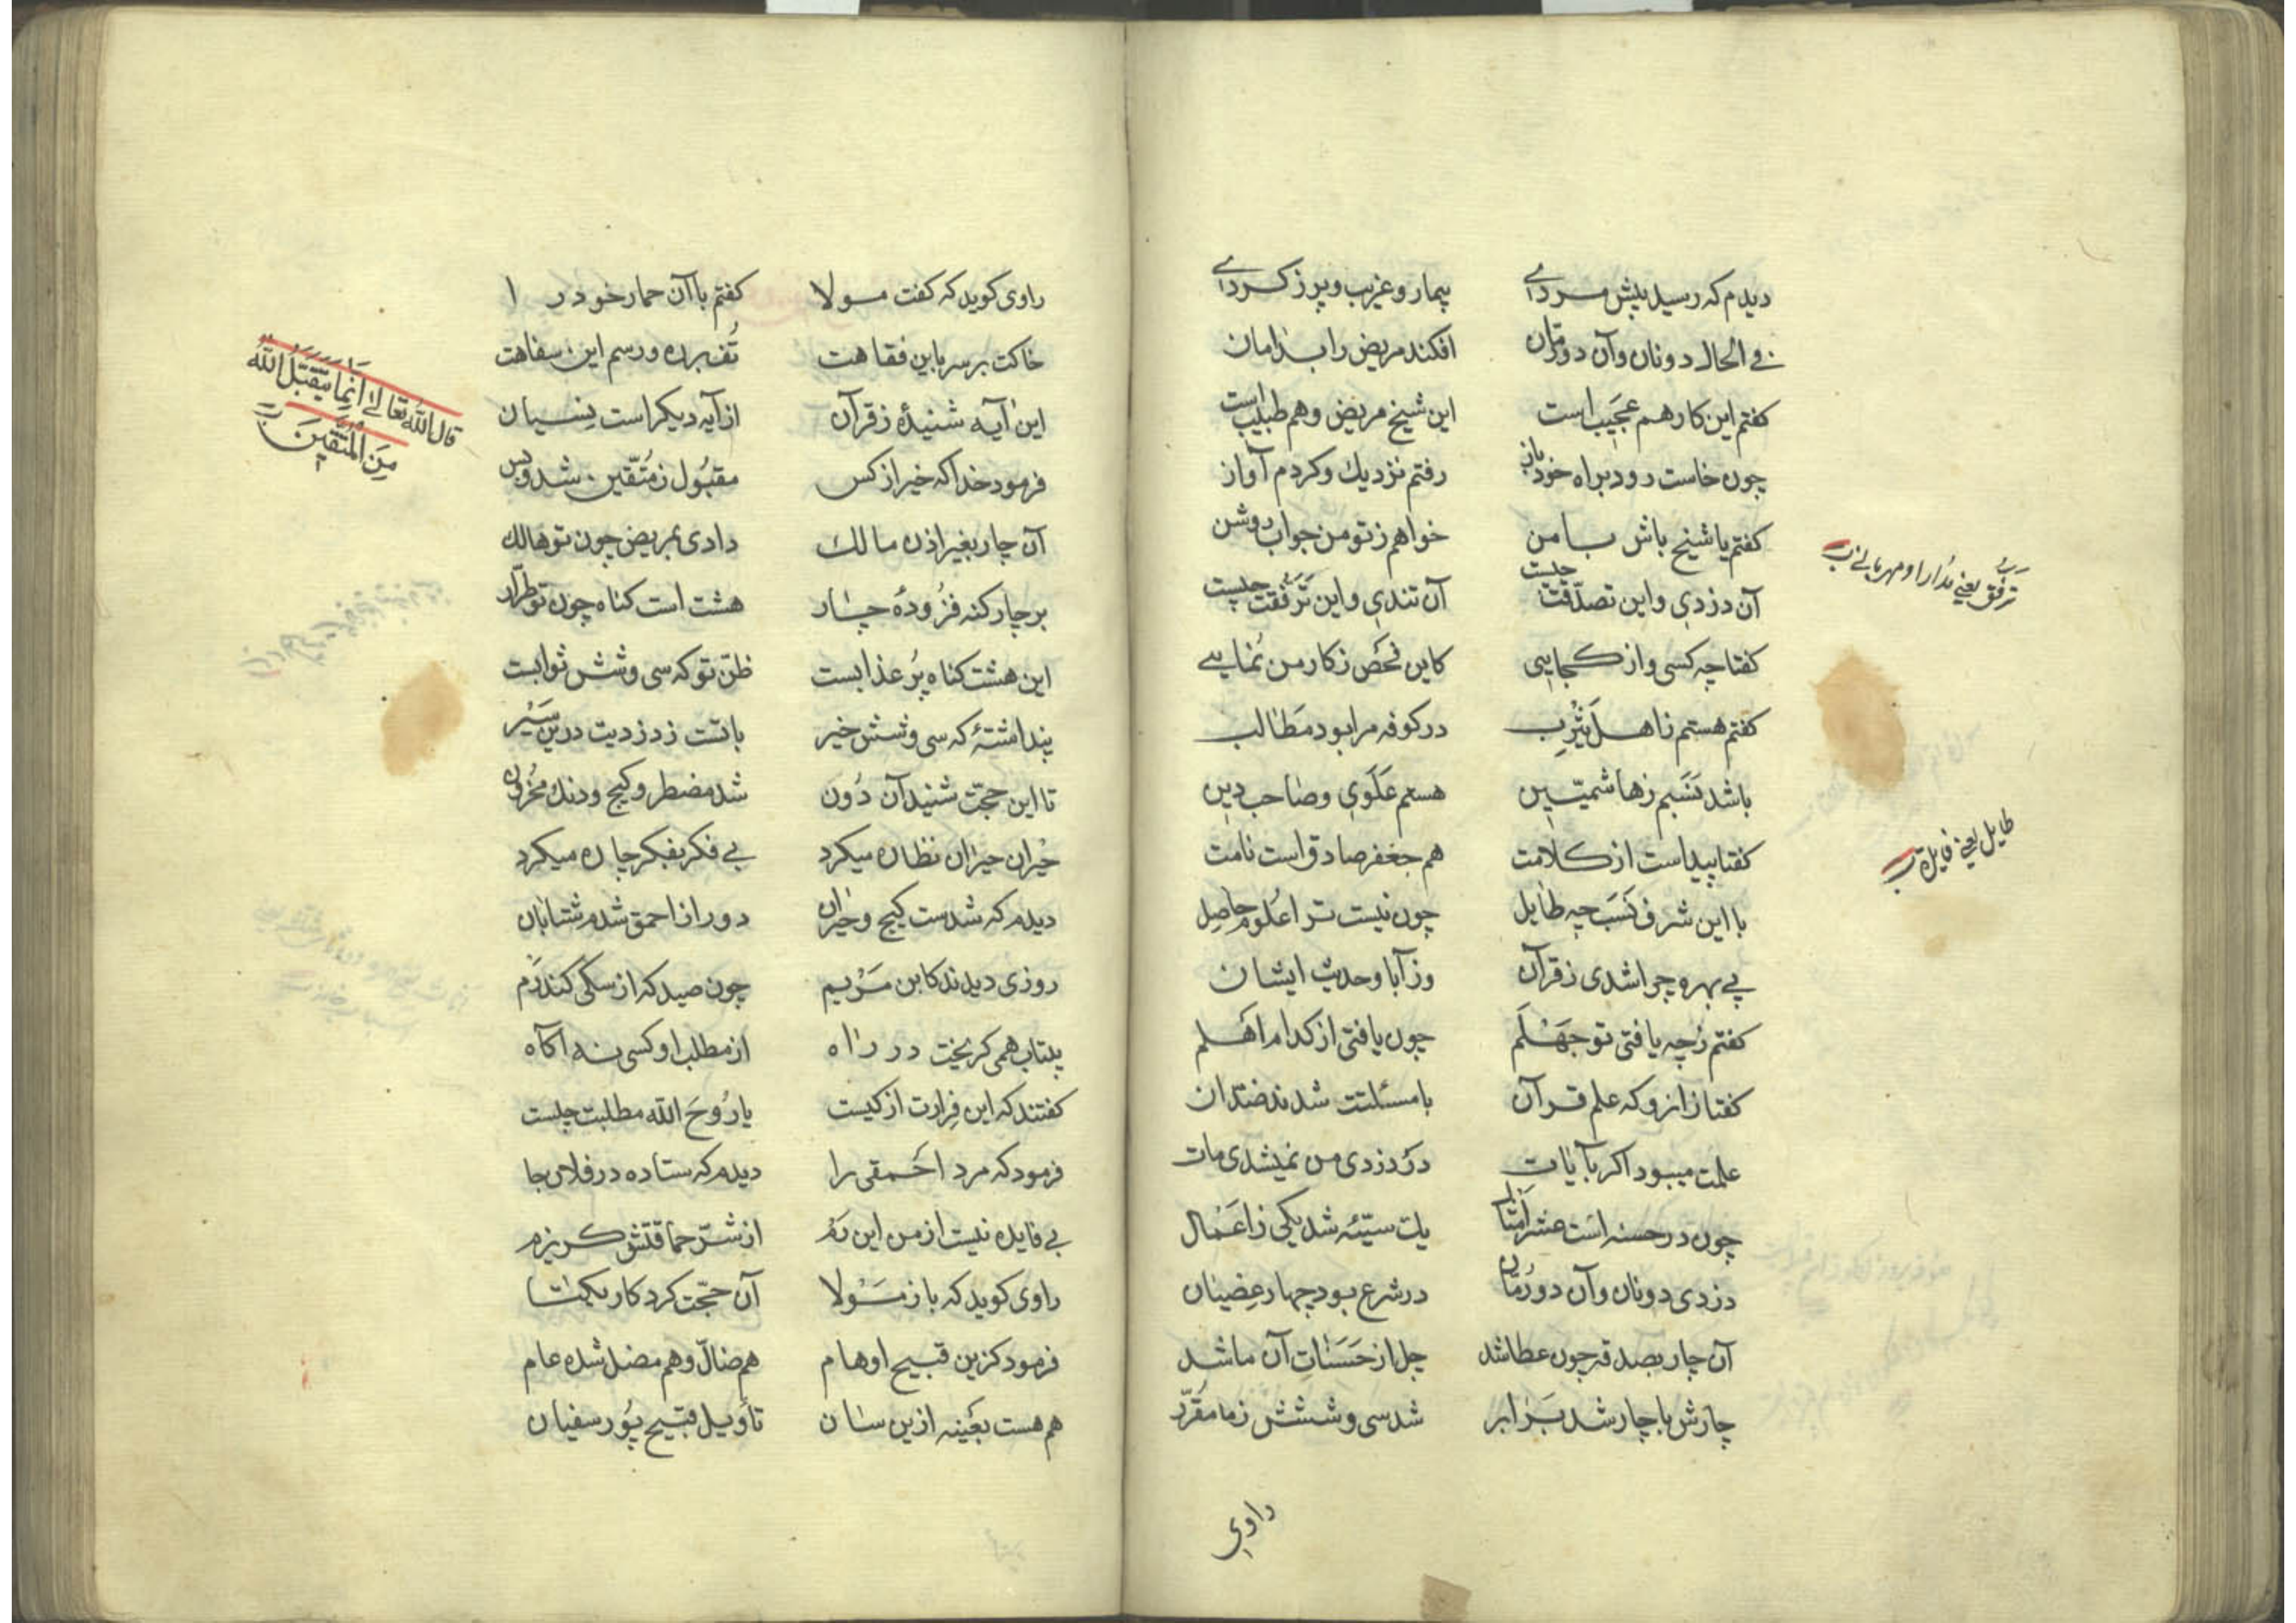 دیدم که رسید پیش مردی بیمار و غریب و پر ز کردی
فی الحال دونان و آن دو رمان افکند مریض را بدامان
کفتم این کار هم عجیب است این شیخ مریض و هم طبیب است
چون خاست رود براه خود باز رفتم نزدیك و کردم آواز
کفتم یا شیخ باش با من خواهم ز تو من جواب روشن
آن دزدی و این تصدّقت چیست آن تندی و این تَرَفُّقت چیست
ترفّق یعنی مُدارا و مهربانی
کفتا چه کسی و از کجایی کاین فحَص ز کار من نُمایی
کفتم هستم ز اهل یَثْرِب در کوفه مرا بود مَطالب
باشد نَسَبم ز هاشمیّین هستم عَلَوی و صاحب دین
کفتا پیداست از کلامت هم جعفر صادق است نامت
طایل یعنی فایده
با این شرف نَسَب چه طایل چون نیست ترا عُلوم حاصِل
بی بهره چرا شدی ز قرآن وز آبا و حدیث ایشان
کفتم زچه یافتی تو جَهْلَم چون یافتی از کدام اَهْلم
کفتا ز انرو که علم قرآن با مسئلتت شدند ضدّان
علمت میبود اکر بآیات در دزدی من نمیشدی مات
چون در حسنه است عشر اَمثال یك سیّئه شد یکی ز اَعْمال
دزدی دونان و آن دو رُمّان در شرع بود چهار عِصْیان
آن چار بصدقه چون عطا شد چل از حَسَناتِ آن ما شد
چارش با چار شد بَرابر شد سی و شش ز ما مقرّر
راوی
راوی کوید که کفت مولا کفتم با آن حمار خودرا
خاکت بر سر باین فقاهت تُف بر ره و رسم این سفاهت
قال الله تعالی اِنَّما یَتَقَبَّلُ الله
مِنَ المُتَّقینَ
این آیه شنیدهٔ ز قرآن از آیه دیکر است نِسیان
فرمود خدا که خیر از کس مقبُول ز مُتّقین شد و بس
آن چار بغیر اذن مالك دادی بمریض چون تو هالك
بر چار کنه فزُودهٔ چار هشت است کناه چون تو طرّار
این هشت کناه پُر عذابست ظنّ تو که سی و شش ثوابست
پنداشتهٔ که سی و شش خیر باتست ز دزدیت درین سَیْر
تا این حجّت شنید آن دُون شد مضطر و کیج و دنك و مَحْزون
حَیْران حیران نظاره میکرد بی فکر بفکر چاره میکرد
دیدم که شدست کیج و حَیْران دور از احمق شدم شتابان
روزی دیدند کابن مَرْیم چون صید که از سکی کند رَم
بیتاب همی کریخت در راه از مطلب او کسی نه آکاه
کفتند که این فِرارت از کیست یا رُوحَ الله مطلبت چیست
فرمود که مرد اَحْمقی را دیدم که ستاده در فلان جا
بی فایده نیست از من این رَم از شرّ حماقتش کریزم
راوی کوید که باز مَوْلا آن حجّت کرد کار یکتا
فرمود کزین قبیح اوهام هم ضالّ و هم مضل شده عام
هم هست بعَینه ازین سان تاَویل قبیح پُور سفیان